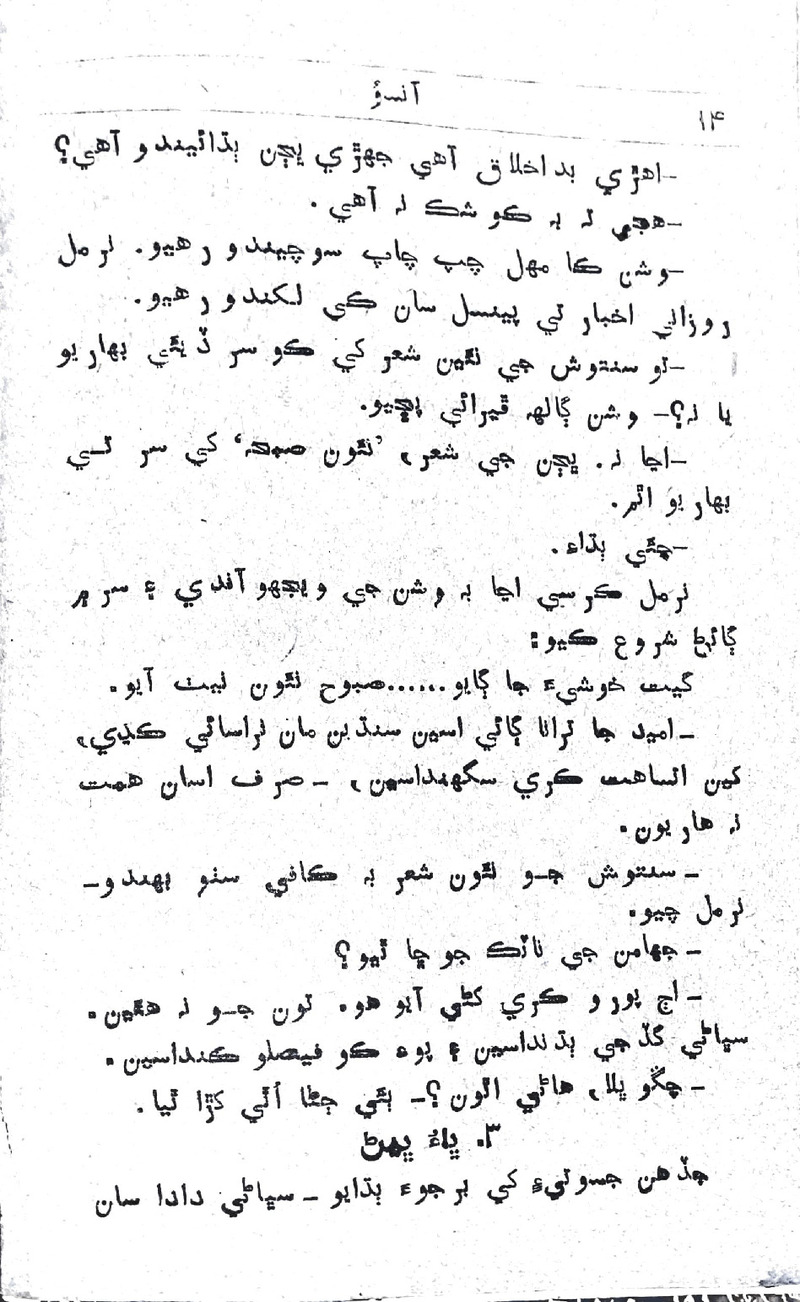 آنسوُ
۱۴
-اهڙي بداخلاق آهي جهڙي ڀڃن ٻڌائيندو آهي؟
-هجي ته به ڪو شڪ نه آهي.
-وشن ڪا مهل چپ چاپ سوچيندو رهيو. نرمل
روزاني اخبار تي پينسل سان ڪي لکندو رهيو.
-تو سنتوش جي نئين شعر کي ڪو سر ڏيئي بهاريو
يا نه؟- وشن ڳالهہ ڦيرائي پڇيو.
-اڃا نہ. ڀڃن جي شعر، ’نئون صبح‘ کي سر تي
بهاريو اٿم.
-چئي ٻڌاءِ.
نرمل ڪرسي اڃا بہ وشن جي ويجهو آندي ۽ سر ۾
ڳائڻ شروع ڪيو:
گيت خوشيءَ جا ڳايو......صبوح نئون نيٺ آيو.
-اميد جا ترانا ڳائي اسين سنڌين مان نراسائي ڪڍي،
کين اتساهت ڪري سگهنداسين، - صرف اسان همت
نہ هاريون.
- سنتوش جو نئون شعر بہ ڪافي سٺو ٻهندو-
نرمل چيو.
- جهامن جي ناٽڪ جو ڇا ٿيو؟
- اڄ پورو ڪري کڻي آيو هو. تون جو نہ هئين.
سڀاڻي گڏجي ٻڌنداسين ۽ پوءِ ڪو فيصلو ڪنداسين.
- چڱو ڀلا، هاڻي اٿون؟- ٻئي ڄڻا اُٿي کڙا ٿيا.
۳. ڀاءُ ڀيڻ
جڏهن جسوتيءَ کي برجوءَ ٻڌايو - سڀاڻي دادا سان